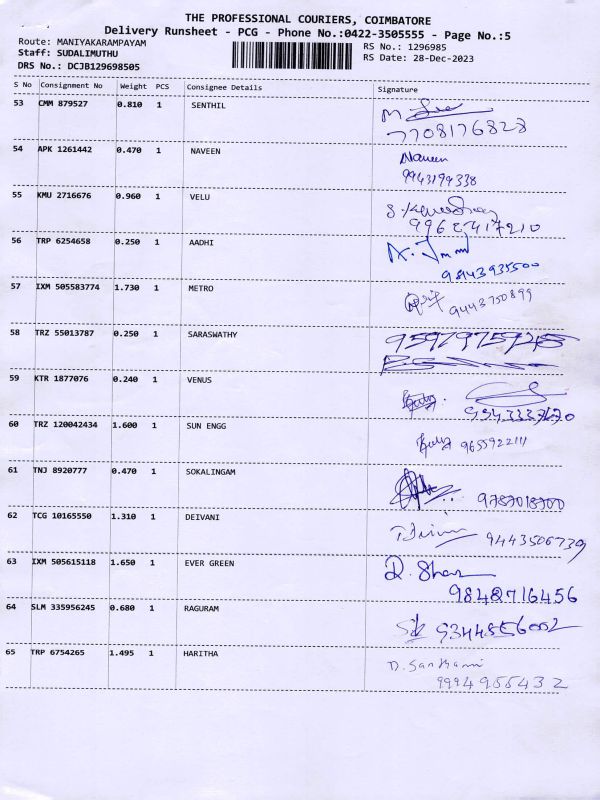 THE PROFESSIONAL COURIERS, COIMBATORE
Delivery Runsheet - PCG - Phone No.:0422-3505555 - Page No.:5
Route: MANIYAKARAMPAYAM
RS No.: 1296985
Staff: SUDALIMUTHU
RS Date: 28-Dec-2023
DRS No.: DCJB129698505
S No Consignment No Weight PCS Consignee Details Signature
53 CMM 879527 0.810 1 SENTHIL
7708176828
54 APK 1261442 0.470 1 NAVEEN Naveen
9943199338
55 KMU 2716676 0.960 1 VELU
56 TRP 6254658 0.250 1 AADHI
9843935500
57 IXM 505583774 1.730 1 METRO 9443750899
58 TRZ 55013787 0.250 1 SARASWATHY
59 KTR 1877076 0.240 1 VENUS
60 TRZ 120042434 1.600 1 SUN ENGG
61 TNJ 8920777 0.470 1 SOKALINGAM
62 TCG 10165550 1.310 1 DEIVANI 9443506739
63 IXM 505615118 1.650 1 EVER GREEN
64 SLM 335956245 0.680 1 RAGURAM
65 TRP 6754265 1.495 1 HARITHA
9994955432